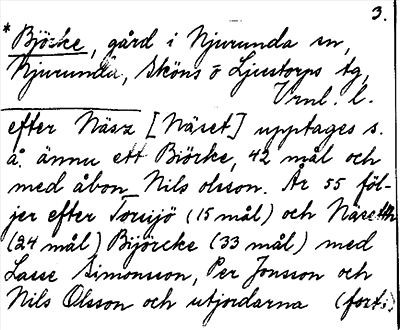 3.
* Björke, gård i Njurunda sn,
Njurunda, Sköns o Ljustorps tg,
Vrnl. l.
efter Näsz [Näset] upptages s.
å. ännu ett Biörke, 42 mål och
med åbon Nils olsson. År 55 föl-
jer efter Torsjö (15 mål) och Näset
(24 mål) Bijörcke (33 mål) med
Lasse Simonsson, Per Jonsson och
Nils Olsson och utjordarna (forts.)